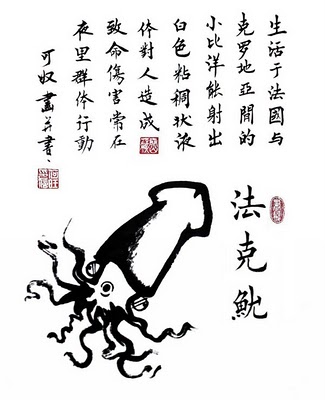 生活于法國与
克罗地亞間的
小比洋能射出
白色粘稠状液
体對人造成
致命傷害常在
夜里群体行動
可奴畫并書、
法克魷